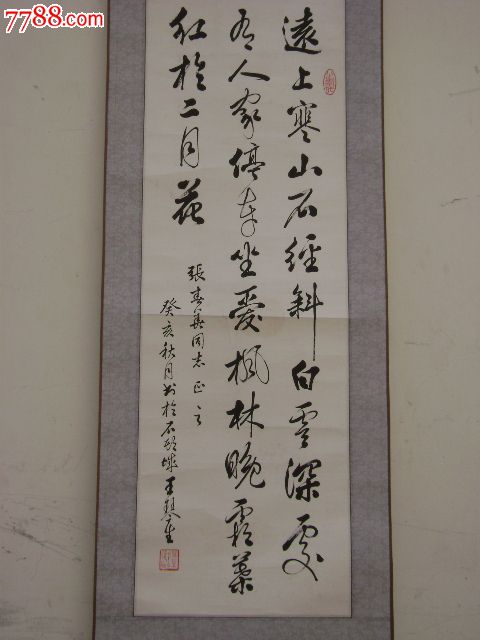 7788.com
遠上寒山石經斜白雲深處
有人家停車坐愛楓林晚霜葉
紅於二月花
張 同志正之
癸亥秋月书於石頭城王